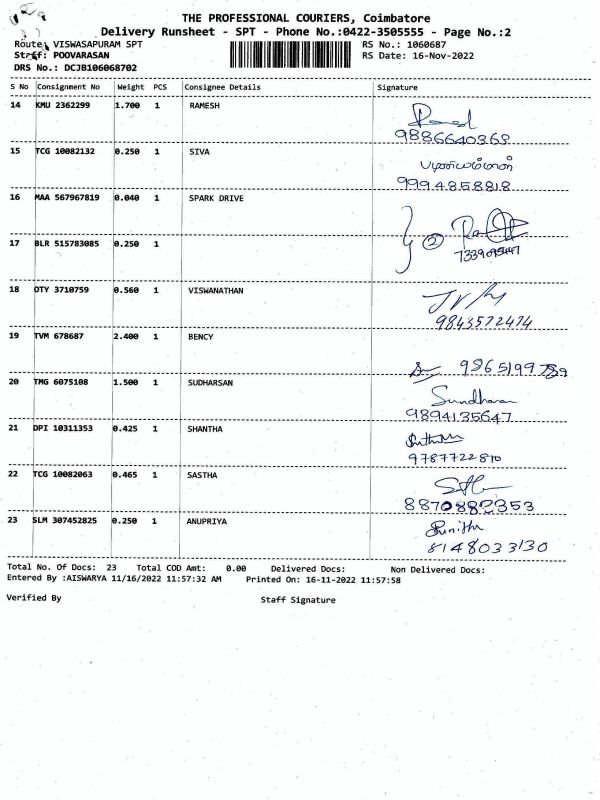 THE PROFESSIONAL COURIERS, Coimbatore
Delivery Runsheet - SPT - Phone No.:0422-3505555 - Page No.:2
Route: VISWASAPURAM SPT RS No.: 1060687
Staff: POOVARASAN RS Date: 16-Nov-2022
DRS No.: DCJB106068702
S No Consignment No Weight PCS Consignee Details Signature
14 KMU 2362299 1.700 1 RAMESH
9886640368
15 TCG 10082132 0.250 1 SIVA
9994858818
16 MAA 567967819 0.040 1 SPARK DRIVE
17 BLR 515783085 0.250 1 2
18 OTY 3710759 0.560 1 VISWANATHAN
9843572474
19 TVM 678687 2.400 1 BENCY
20 TMG 6075108 1.500 1 SUDHARSAN Sundharan
9894135647
21 DPI 10311353 0.425 1 SHANTHA
9787722810
22 TCG 10082063 0.465 1 SASTHA
8870882353
23 SLM 307452825 0.250 1 ANUPRIYA
8148033130
Total No. Of Docs: 23 Total COD Amt: 0.00 Delivered Docs: Non Delivered Docs:
Entered By :AISWARYA 11/16/2022 11:57:32 AM Printed On: 16-11-2022 11:57:58
Verified By Staff Signature